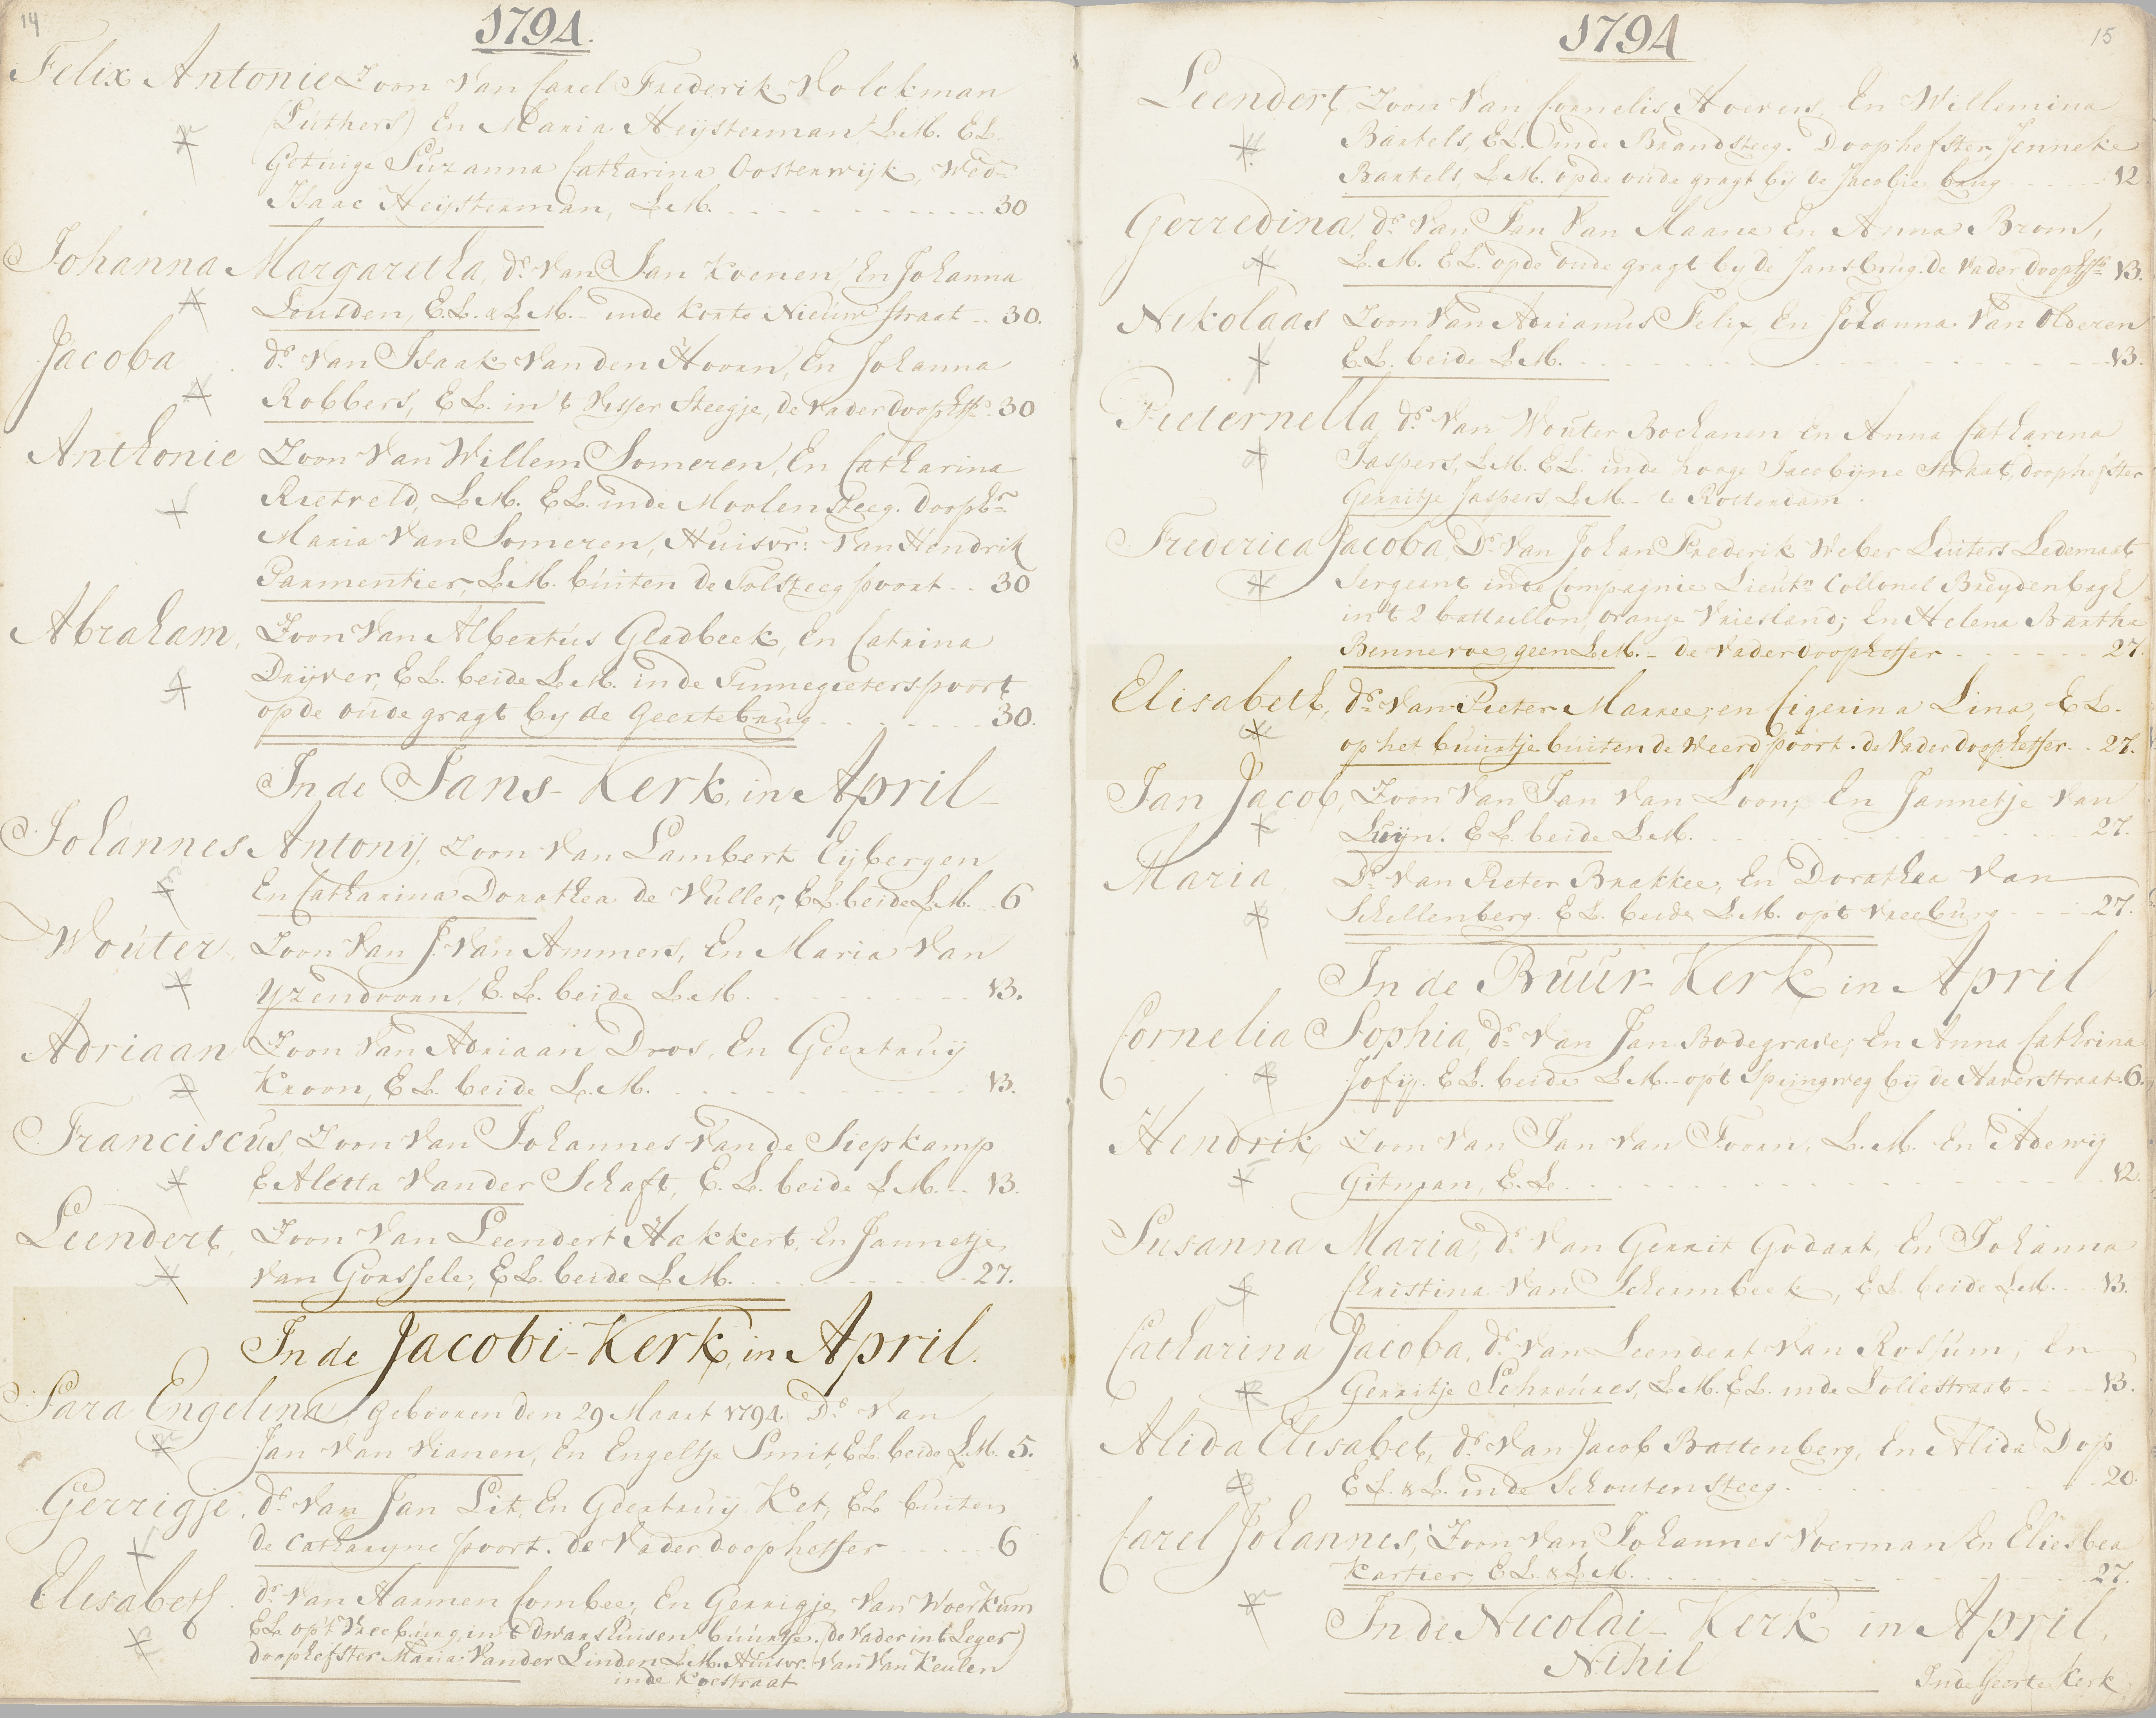 14
1794.
Felix Antonie Zoon Van Carel Frederik Volckman
(Luthers) En Maria Heijsterman, L.M. E.L.
Getuige Suzanna Catharina Oosterwijk, Wed:
Isaac Heijsterman, L.M. 30
Johanna Margaretha, dr. Van Jan Koenen, En Johanna
Lousden, E.L. & L.M. inde Korte Nieuw straat 30.
Jacoba dr. Van Isaak Van den Hoorn, En Johanna
Robbers, E.L. in 't Visser Steegje, de Vader doophr. 30
Anthonie Zoon Van Willem Someren, En Catharina
Rietveld, L.M. E.L. inde Moolen steeg. Doophr.
Maria Van Someren, Huisvr: Van Hendrik
Parmentier, L.M. buiten de Tolsteegpoort 30
Abraham, Zoon Van Albertus Gladbeek, En Catrina
Drijver, E.L. beide L.M. inde Tinnegieterspoort
op de oude gragt by de Geertebrug 30.
In de Jans-Kerk, in April
Johannes Antonij, Zoon Van Lambert Eijbergen
En Catharina Dorothea de Vuller, E.L. beide L.M. 6
Wouter, Zoon Van J. Van Ammers, En Maria Van
Yzendoorn, E.L. beide L.M. 13.
Adriaan Zoon Van Adriaan Dros, En Geertruij
Kroon, E.L. beide L.M. 13.
Franciscus, Zoon Van Johannes Van de Siepkamp
E Aletta Van der Schaft, E.L. beide L.M. 13.
Leendert, Zoon Van Leendert Hakkert, En Jannetje
Van Gorssele, E.L. beide L.M. 27.
In de Jacobi-Kerk, in April.
Sara Engelina, Gebooren den 29 Maart 1794. Dr. Van
Jan Van Vianen, En Engeltje Smit, E.L. beide L.M. 5.
Gerrigje, dr. Van Jan Lit, En Geertruij Ket, E.L. buiten
de Catharyne poort. de Vader doopheffer 6
Elisabeth dr. Van Harmen Combee, En Gerrigje Van Woerkum
E.L. op 't Vreeburg, in 't dwarshuisen buurtje. (de Vader in 't Leger)
Doophefster Maria Van der Linden L.M. Huisvr. Van Van Keulen
inde Koestraat
1794
15
Leendert, Zoon Van Cornelis Hoevers, En Willemina
Bartels, E.L. inde Brandsteeg. Doophefster, Jenneke
Bartels, L.M. op de oude gragt bij de Jacobie brug 12
Gerredina, dr. Van Jan Van Maane En Anna Brom,
L.M. E.L. op de oude gragt by de Jansbrug. de Vader doophr. 13.
Nikolaas Zoon Van Adrianus Felix, En Johanna Van Olderen
E.L. beide L.M. 13.
Pieternella, dr. Van Wouter Bochanen En Anna Catharina
Jaspers, L.M. E.L. inde hooge Jacobyne Straat, doophefster
Gerritje Jaspers, L.M. te Rotterdam.
Frederica Jacoba, Dr. Van Johan Frederik Weber Luiters Ledemaat
Sergeant inde Compagnie Lieutn. Collonel Breydenbagh
in 't 2 battaillon, Orange Vriesland; En Helena Bartha
Bennevoe, geen L.M. de Vader doopheffer 27.
Elisabeth, dr. Van Pieter Marree, en Cigerina Lina, E.L.
op het buurtje buiten de Weerdpoort. de Vader doopheffer 27.
Jan Jacob, Zoon Van Jan Van Loon, En Jannetje Van
Luyn. E.L. beide L.M. 27.
Maria Dr. Van Pieter Brakkee, En Dorothea Van
Schellenberg. E.L. beide L.M. op 't Vreeburg 27.
In de Buur-Kerk in April
Cornelia Sophia, dr. Van Jan Bodegraven, En Anna Cathrina
Jofij. E.L. beide L.M. op 't Springweg bij de Haverstraat. 6.
Hendrik Zoon Van Jan Van Toorn, L.M. En Adewij
Gitman, E.L. 12.
Susanna Maria, dr. Van Gerrit Godart, En Johanna
Christina Van Schermbeek, E.L. beide L.M. 13.
Catharina Jacoba, dr. Van Leendert Van Rossum, En
Gerritje Schreures, L.M. E.L. inde Lollestraat 13.
Alida Elisabet, dr. Van Jacob Battenberg, En Alida Dop
E.L. & L. inde Schoutensteeg 20.
Carel Johannes, Zoon Van Johannes Voerman En Eliesbea
Kartier, E.L. & L.M. 27.
In de Nicolai-Kerk in April,
Nihil
In de Geerte Kerk